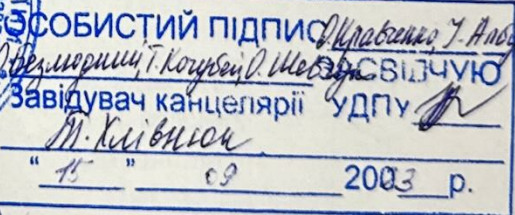 ОСОБИСТИЙ ПІДПИС О. Кравченко, І. Албу
О. Безлюдний, Т. Кочубей, О. Шевчук ЗАСВІДЧУЮ
Завідувач канцелярії УДПУ
Т. Хлівнюк
“ 15 ” 09 2003 р.